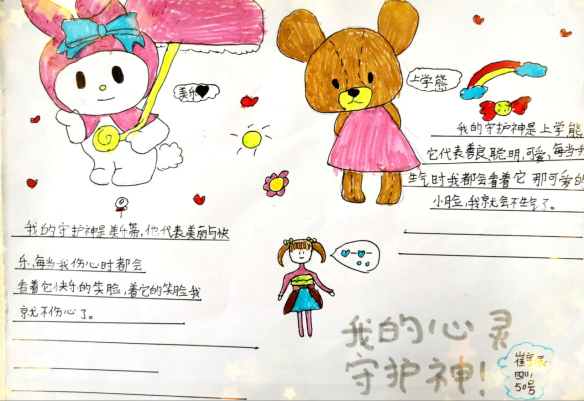 美乐♥
上学熊
我的守护神是上学熊
它代表善良聪明,可爱,每当我
生气时我都会看着它 那可爱的
小脸,我就会不生气了。
我的守护神是美乐蒂,他代表美丽与快
乐,每当我伤心时都会
看着它快乐的笑脸,着它的笑脸我
就不伤心了。
我的心灵
守护神!
崔
四01
50号